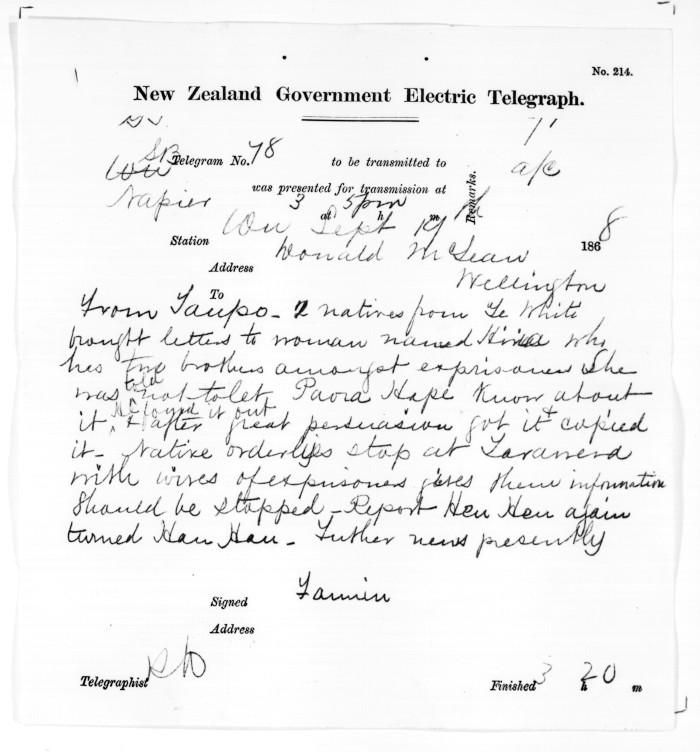 No. 214.
New Zealand Government Electric Telegraph.
SB
Telegram No. 78 to be transmitted to a/c
was presented for transmission at
Remarks.
Napier 3 5 pm
at h m
Station Sept 19 1868
Donald McLean
Address
Wellington
To
From Taupo - 2 natives from Te White
brought letters to woman named who
has two brothers amongst exprisoners She
was told not to let Paora Hape Know about
it, He found it out & after great persuasion got it & copied
it - Native orderlys stop at Tarawera
with wives of exprisoners gives them information
Should be stopped - Report Heu Heu again
turned Hau Hau - Futher news presently
Signed
Address
Telegraphist
Finished 3 h 20 m